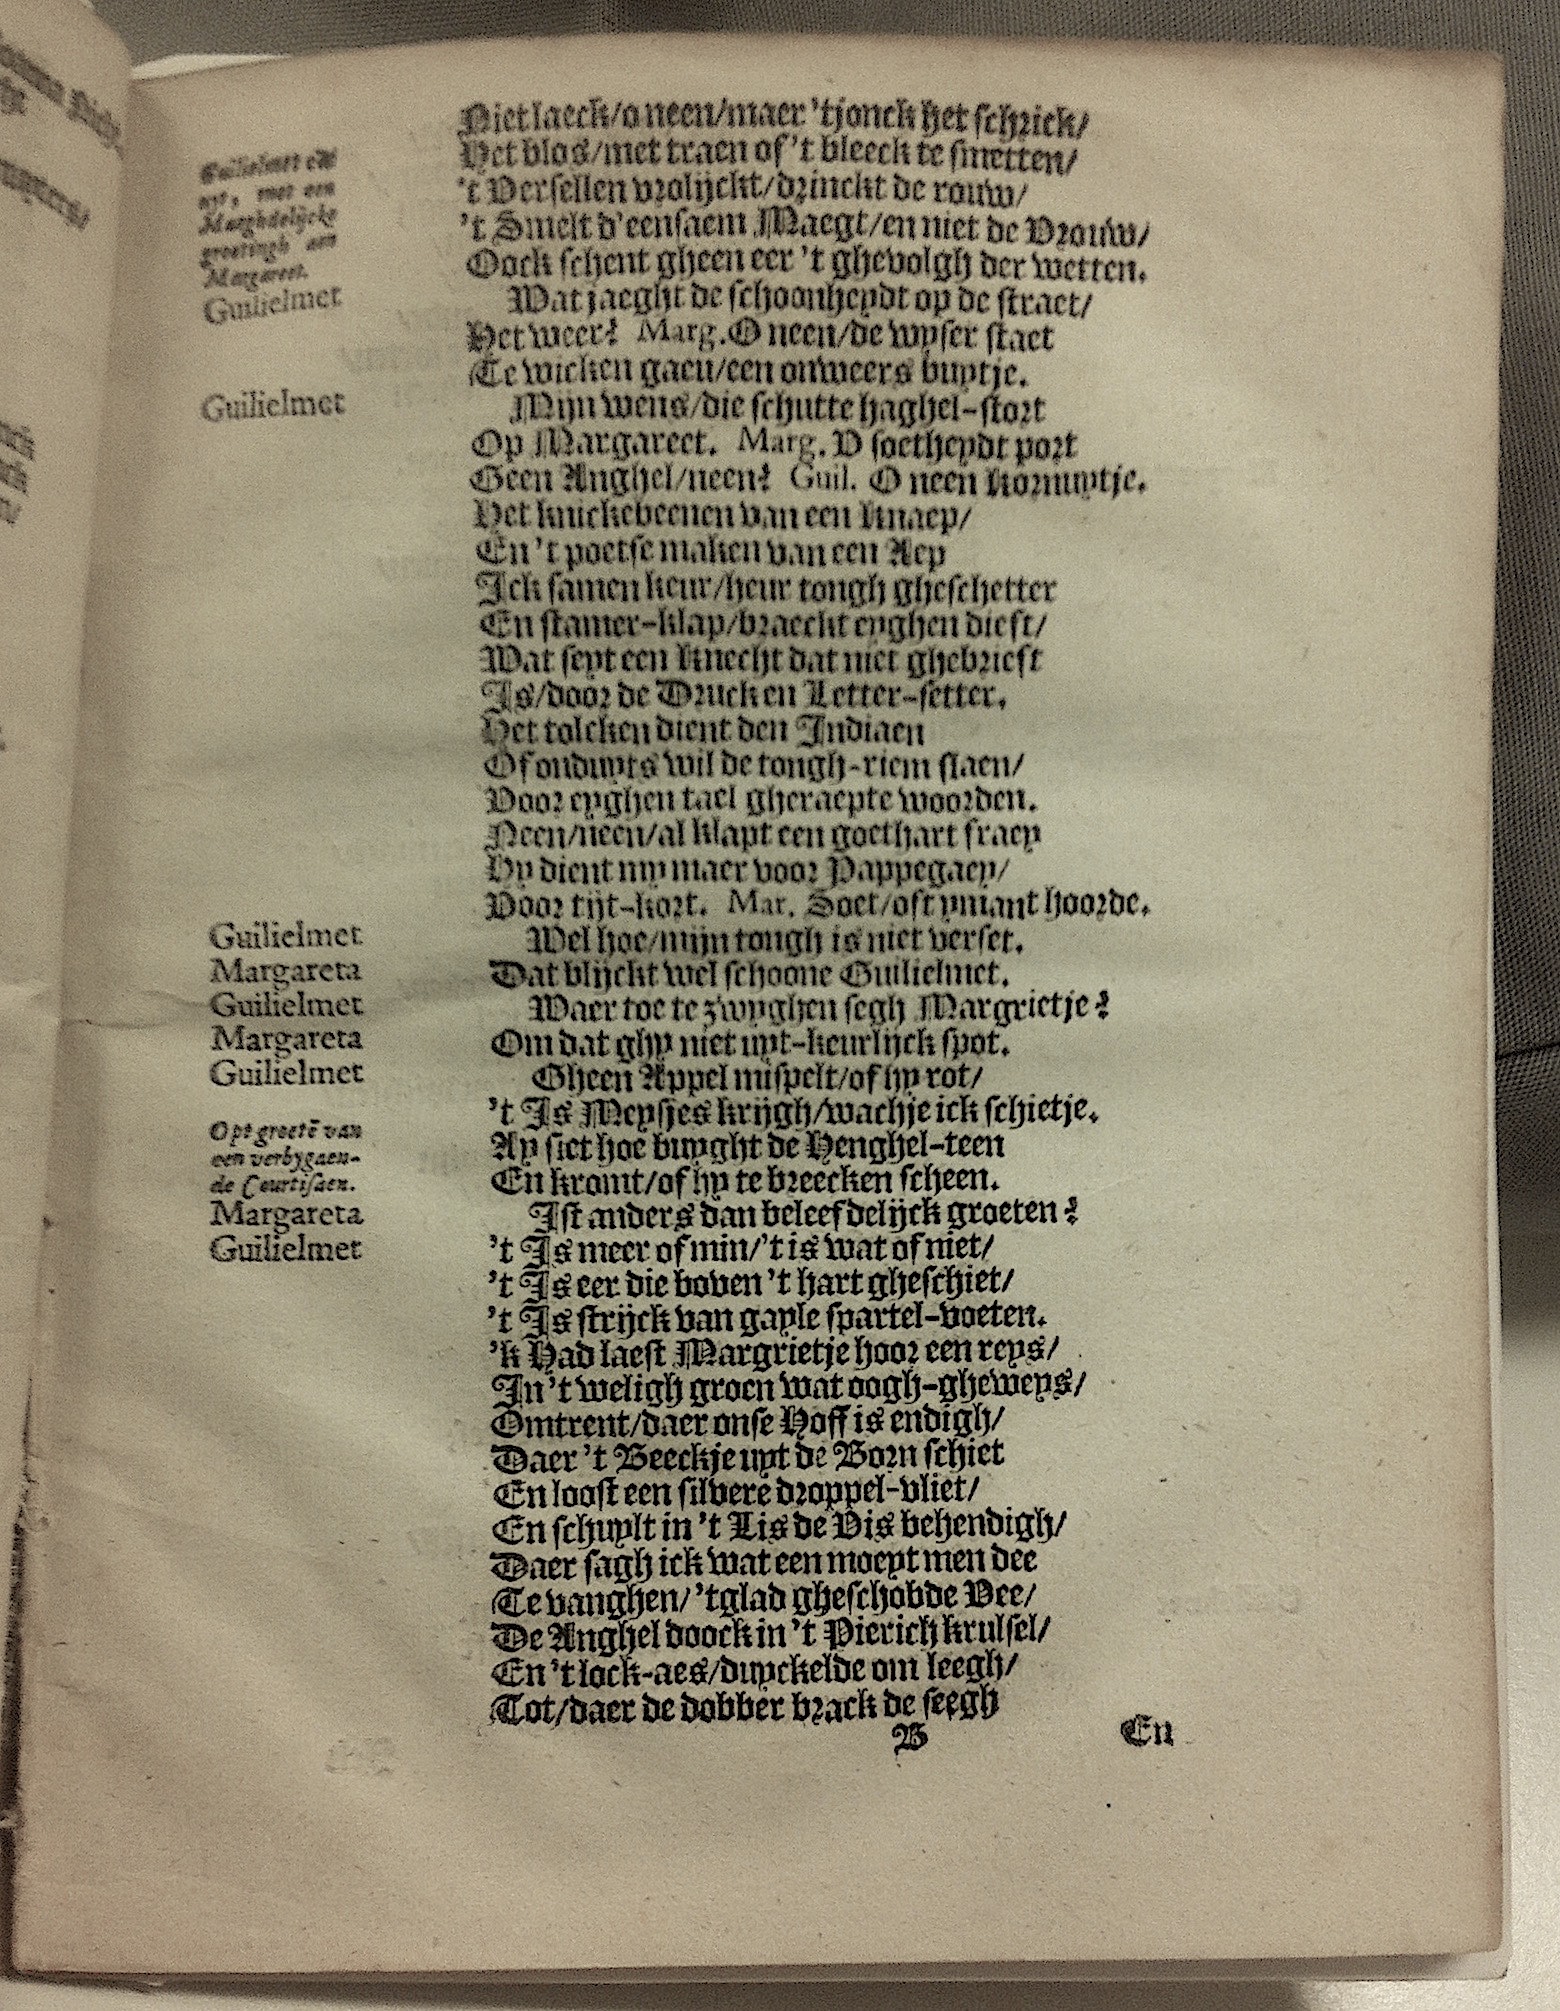 Niet laeck/o neen/maer 'tjonck het schrick/
Het blos/met traen of 't bleeck te smetten/
't Versellen vrolijckt/drinckt de rouw/
't Smelt d'eensaem Maegt/en niet de Vrouw/
Oock schent gheen eer 't ghevolgh der wetten.
Guilielmet
uyt, met een
Maeghdelijcke
groetingh aen
Margareet.
Guilielmet Wat jaeght de schoonheydt op de straet/
Het weer? Marg. O neen/de wyser staet
Te wicken gaen/een onweers buytje.
Guilielmet Mijn wens/die schutte haghel-stort
Op Margareet. Marg. V soetheydt port
Geen Anghel/neen? Guil. O neen kornuytje.
Het knickebeenen van een knaep/
En 't poetse maken van een Aep
Ick samen keur/heur tongh gheschetter
En stamer-klap/braeckt eyghen dieft/
Wat seyt een knecht dat niet ghebrieft
Is/door de Druck en Letter-setter.
Het tolcken dient den Indiaen
Of onduyts wil de tongh-riem slaen/
Voor eyghen tael gheraepte woorden.
Neen/neen/al klapt een goethart fraey
Hy dient my maer voor Pappegaey/
Voor tijt-kort. Mar. Soet/oft ymant hoorde.
Guilielmet Wel hoe/mijn tongh is niet verset.
Margareta Dat blijckt wel schoone Guilielmet.
Guilielmet Waer toe te zwyghen segh Margrietje?
Margareta Om dat ghy niet uyt-keurlijck spot.
Guilielmet Gheen Appel mispelt/of hy rot/
't Is Meysjes krijgh/wachje ick schietje.
Opt groetē van
een verbygaen-
de Courtisaen.
Ay siet hoe buyght de Henghel-teen
En kromt/of hy te breecken scheen.
Margareta Ist anders dan beleefdelijck groeten?
Guilielmet 't Is meer of min/'t is wat of niet/
't Is eer die boven 't hart gheschiet/
't Is strijck van gayle spartel-voeten.
'k Had laest Margrietje hoor een reys/
In 't weligh groen wat oogh-gheweys/
Omtrent/daer onse Hoff is endigh/
Daer 't Beeckje uyt de Born schiet
En loost een silvere droppel-vliet/
En schuylt in 't Lis de Vis behendigh/
Daer sagh ick wat een moeyt men dee
Te vanghen/'tglad gheschobde Vee/
De Anghel doock in 't Pierich krulsel/
En 't lock-aes/duyckelde om leegh/
Tot/daer de dobber brack de seegh
B En